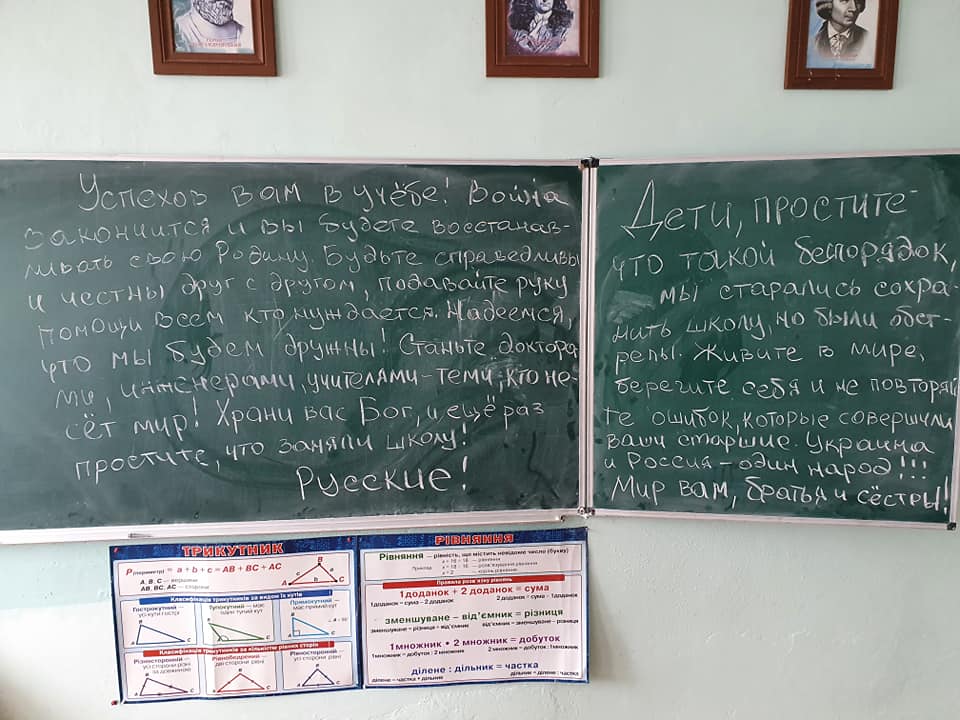 Успехов вам в учёбе! Война
закончится и вы будете восстанав-
ливать свою Родину. Будьте справедливы
и честны друг с другом, подавайте руку
помощи всем кто нуждается. Надеемся,
что мы будем дружны! Станьте доктора-
ми, инженерами, учителями - теми, кто не-
сёт мир! Храни вас Бог, и ещё раз
простите, что заняли школу!
Русские!
Дети, простите
что такой беспорядок,
мы старались сохра-
нить школу, но были обст-
релы. Живите в мире,
берегите себя и не повторяй
те ошибок, которые совершили
ваши старшие. Украина
и Россия - один народ!!!
Мир вам, братья и сёстры!
ТРИКУТНИК
P(периметр) = a + b + c = AB + BC + AC
A, B, C — вершини
AB, BC, AC — сторони
B
a
c
A
b
C
Класифікація трикутників за видом їх кутів
Гострокутний —
усі кути гострі
Тупокутний — має
один тупий кут
Прямокутний —
має прямий кут
Класифікація трикутників за кількістю рівних сторін
Різносторонній —
усі сторони різні
за довжиною
Рівнобедрений —
дві сторони рівні
Рівносторонній —
усі сторони рівні
РІВНЯННЯ
Рівняння — рівність, що містить невідоме число (букву)
Правила розв'язку рівнянь
1доданок + 2 доданок = сума
1доданок = сума – 2 доданок
2 доданок = сума – 1доданок
зменшуване – від'ємник = різниця
зменшуване = різниця + від'ємник
від'ємник = зменшуване – різниця
1множник • 2 множник = добуток
1множник = добуток : 2 множник
2 множник = добуток : 1множник
ділене : дільник = частка
ділене = частка • дільник
дільник = ділене : частка